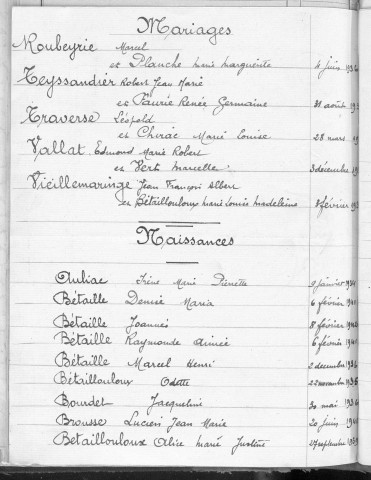 Mariages
Roubeyrie Marcel
et Planche Marie Marguerite 4 juin 193
Teyssandier Robert Jean Marie
et Faurie Renée Germaine 31 août 193
Traverse Léopold
et Chirac Marie Louise 28 mars 19
Vallat Edmond Marie Robert
et Vert Marcelle 3 décembre 19
Vieillemaringe Jean François Albert
et Bétaillouloux Marie Louis Madeleine 8 février 193
Naissances
Aubiac Irène Marie Pierrette 9 janvier 1934
Bétaille Denise Maria 6 février 1940
Bétaille Joannès 8 février
Bétaille Raymonde Aimée 6 février
Bétaille Marcel Henri 2 décembre 1936
Bétaillouloux Odette 22 novembre 1936
Bourdet Jacqueline 30 mai 1936
Brousse Lucien Jean Marie 20 juin
Betaillouloux Alice Marie Justine 27 septembre 1939